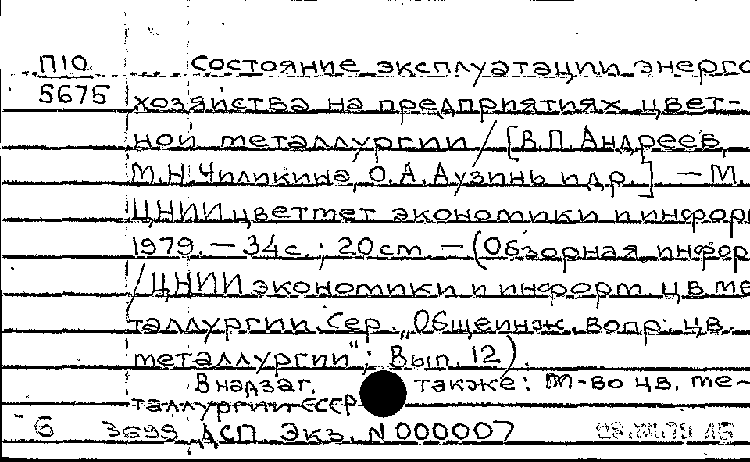 П10 Состояние эксплуатации энерго
5675 хозяйства на предприятиях цвет-
ной металлургии / [В.П. Андреев,
М.Н. Чиликина, О.А. Аузинь и др.] — М.
ЦНИИцветмет экономики и информ
1979. — 34 с. ; 20 см. — (Обзорная инфор
/ ЦНИИ экономики и информ. цв. ме
таллургии. Сер. „Общеинж. вопр. цв.
металлургии"; Вып. 12).
В надзаг. также: М-во цв. ме-
таллургии СССР
6 3699 АСП. Экз. N 000007